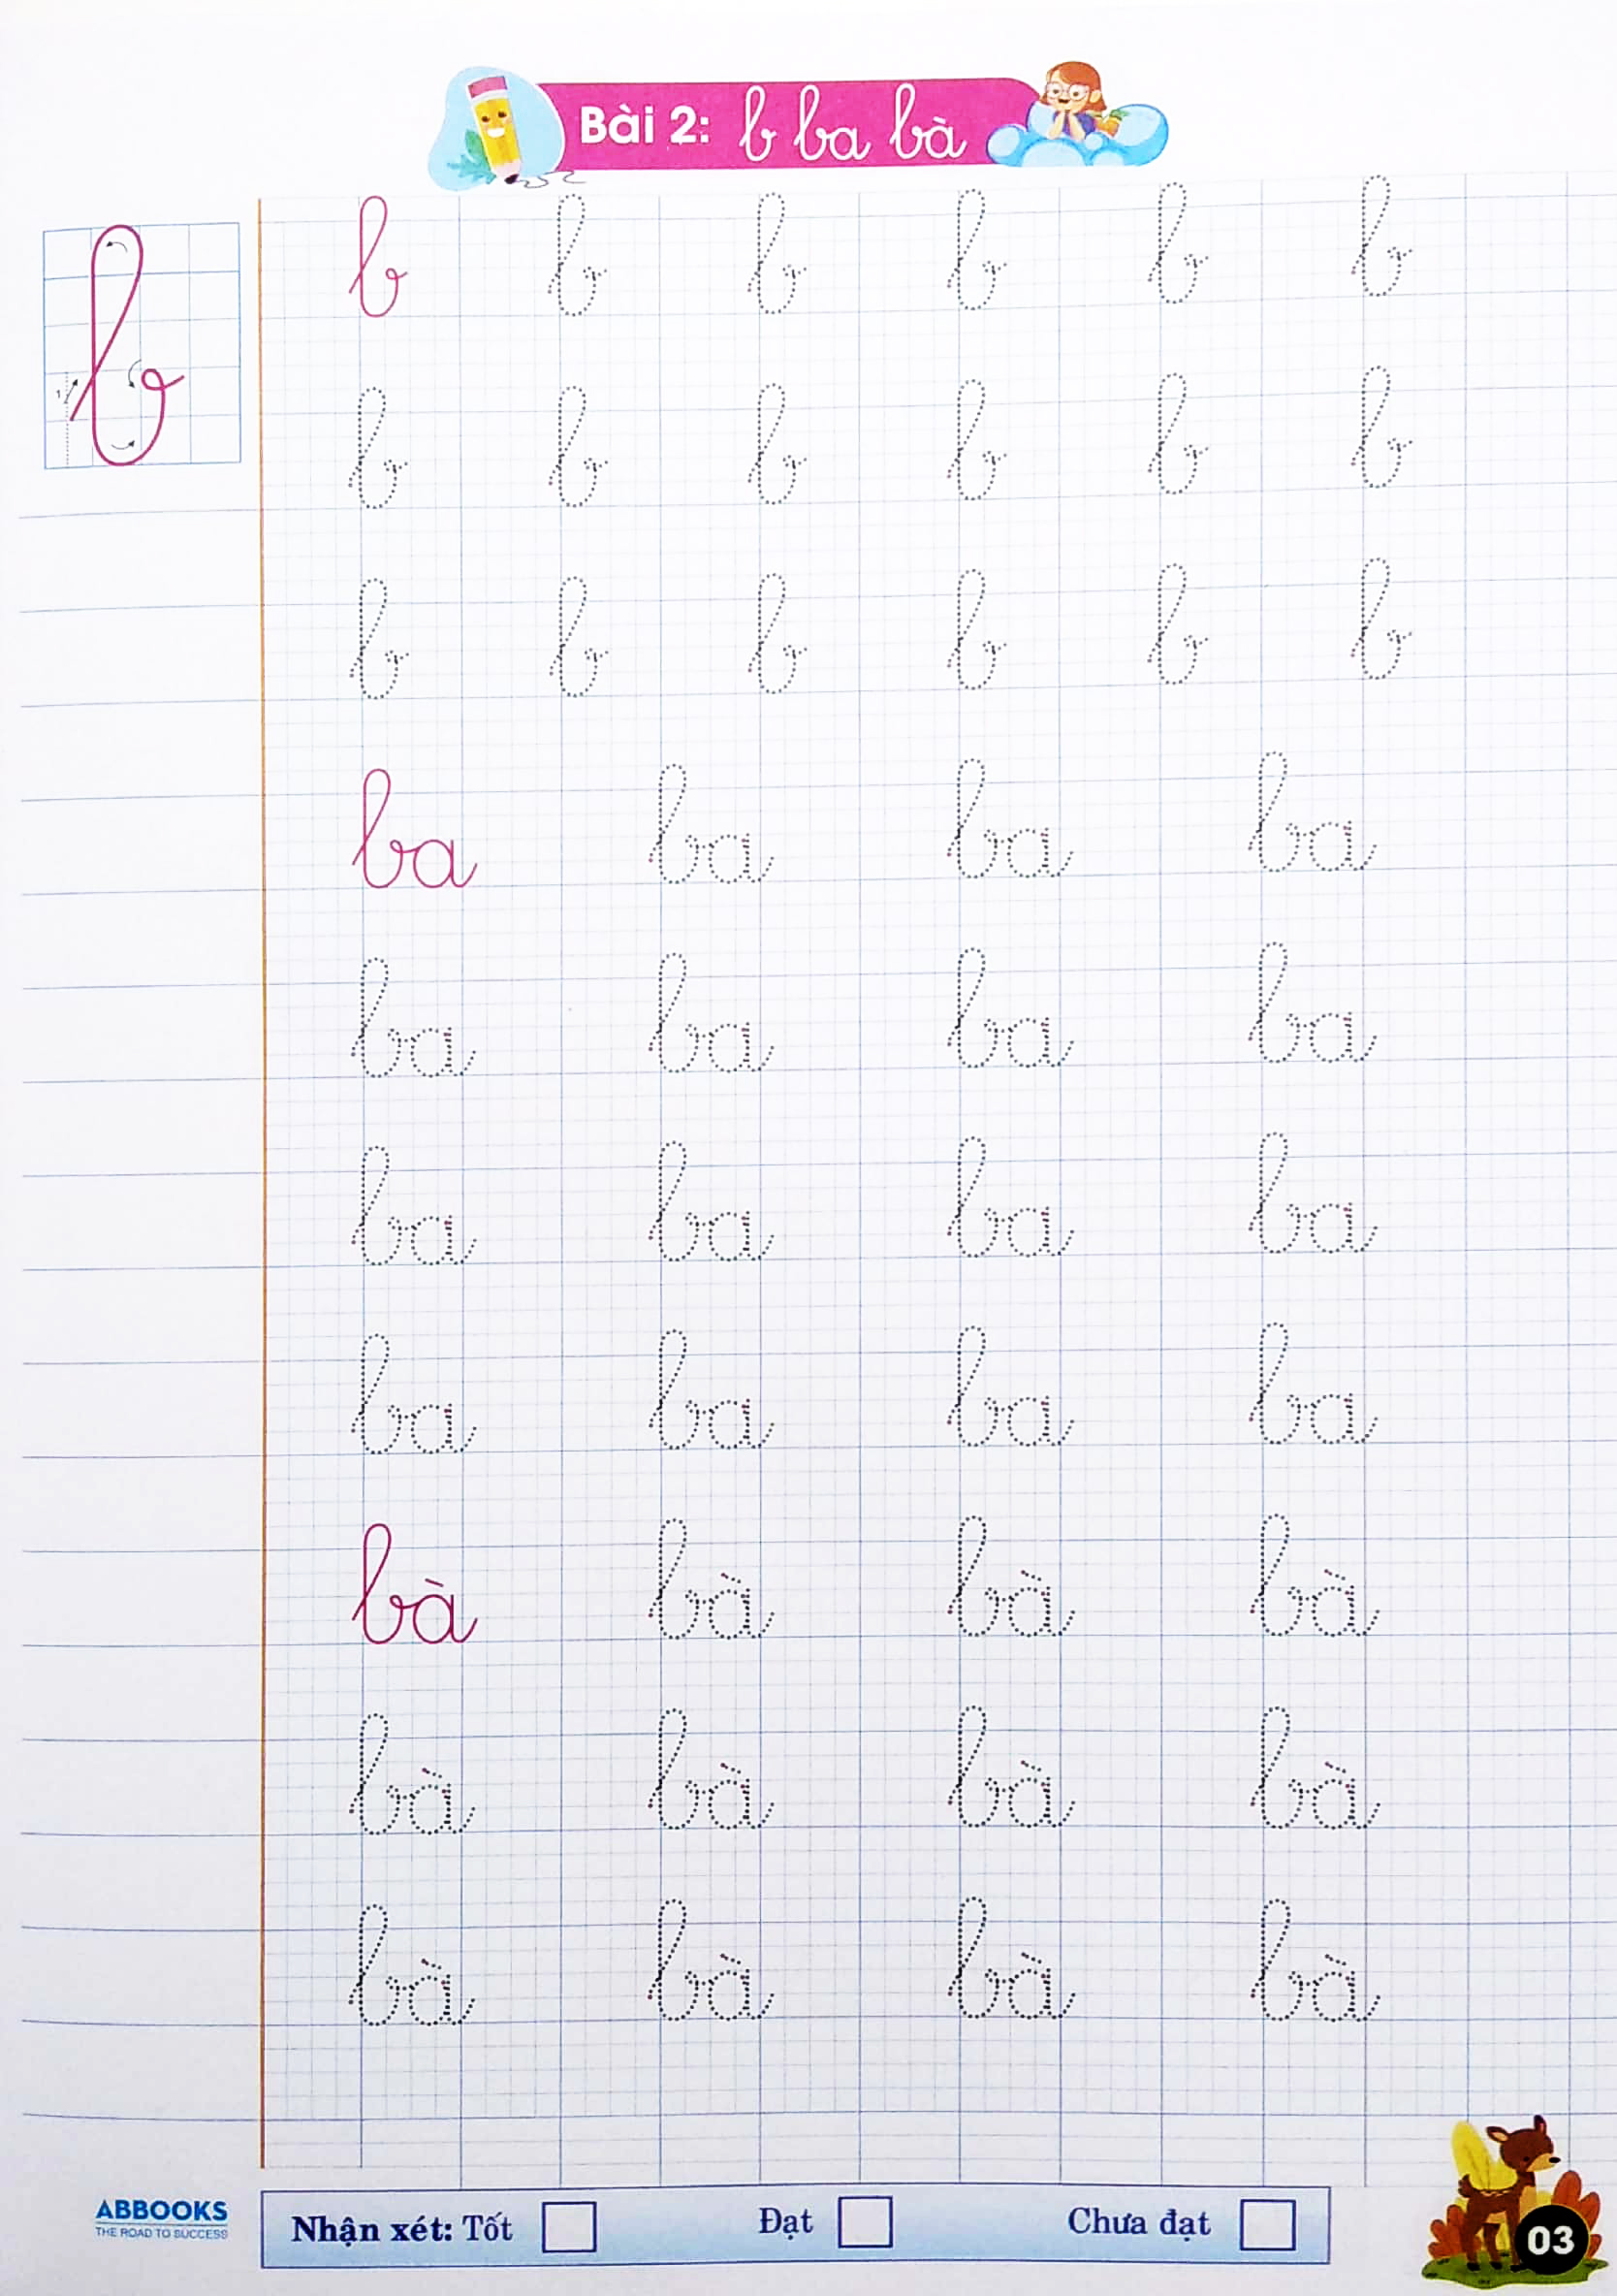 Bài 2: b ba bà
1
b b b b b b
b b b b b b
b b b b b b
ba ba ba ba
ba ba ba ba
ba ba ba ba
ba ba ba ba
bà bà bà bà
bà bà bà bà
bà bà bà bà
b
ABBOOKS
THE ROAD TO SUCCESS
Nhận xét: Tốt Đạt Chưa đạt
03